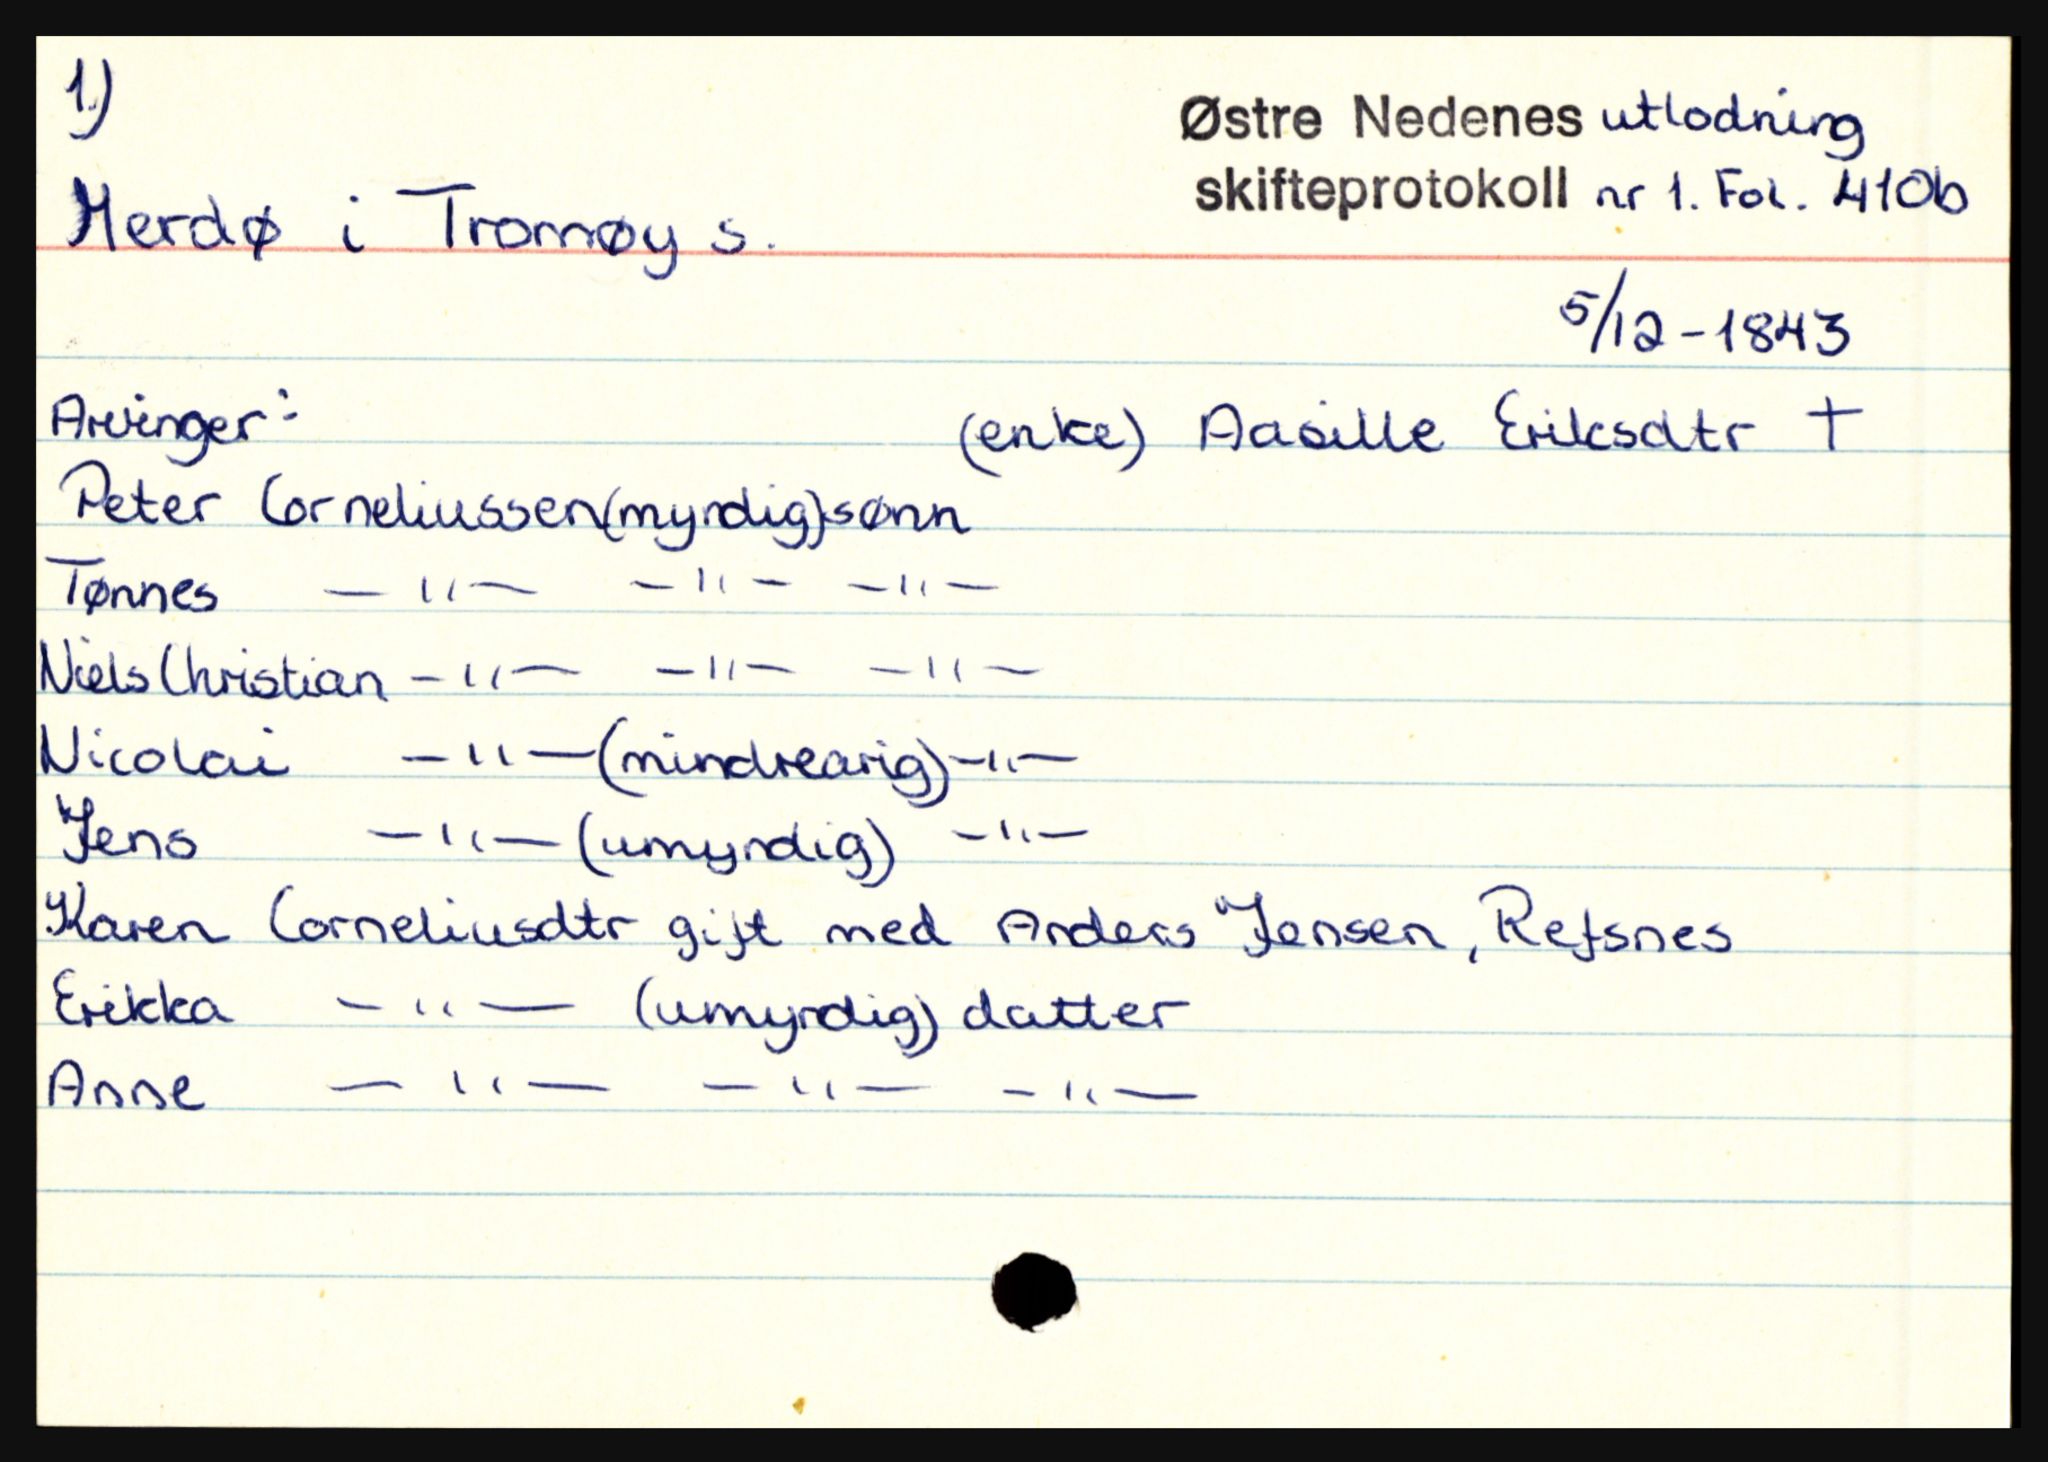 1)
Østre Nedenes utlodning
skifteprotokoll nr 1. Fol. 410b
Merdø i Tromøy s.
5/12-1843
Arvinger:
(enke) Aasille Eriksdtr †
Peter Corneliussen (myndig) sønn
Tønnes -"- -"- -"-
Niels Christian -"- -"- -"-
Nicolai -"- (mindrearig) -"-
Jens -"- (umyndig) -"-
Karen Corneliusdtr gift med Anders Jensen, Refsnes
Erikka -"- (umyndig) datter
Anne -"- -"- -"-